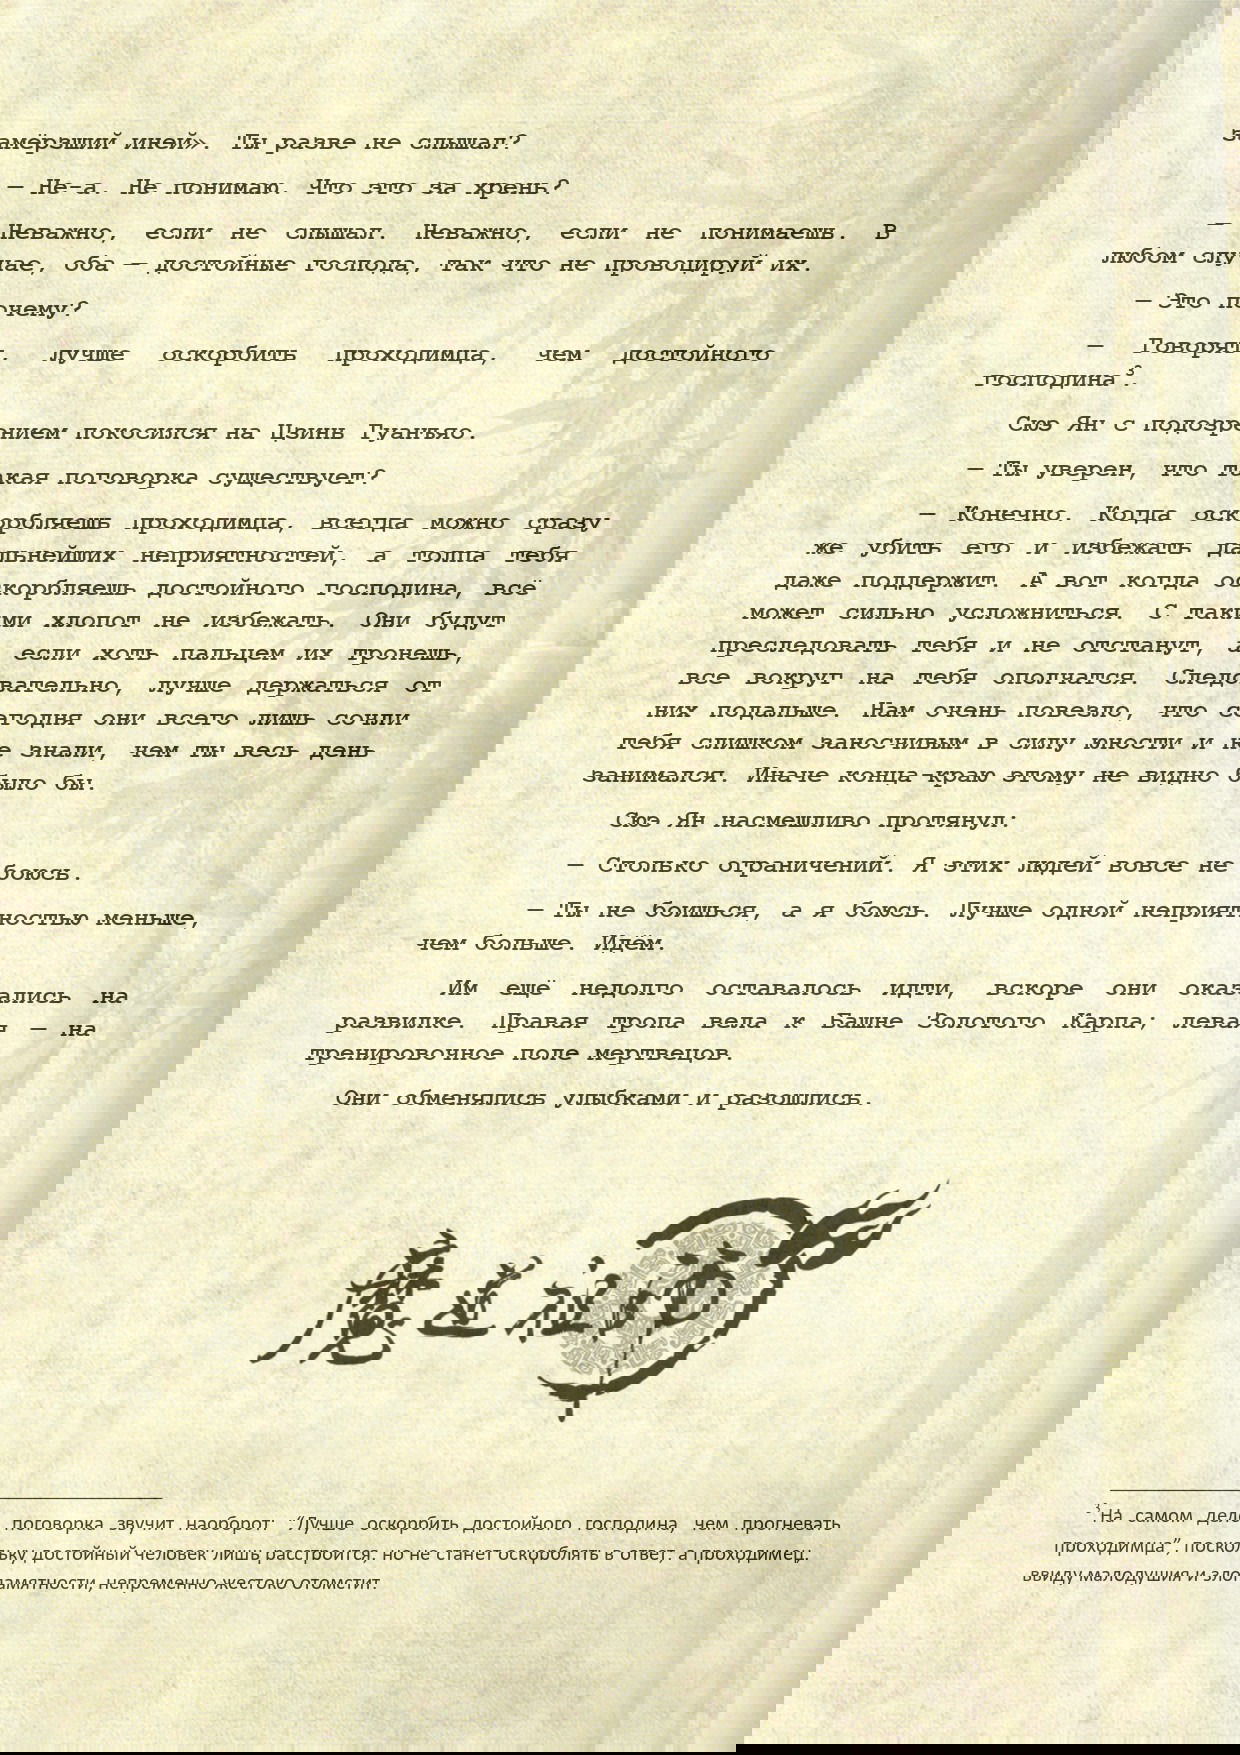 замёрзший иней». Ты разве не слышал?
— Не-а. Не понимаю. Что это за хрень?
— Неважно, если не слышал. Неважно, если не понимаешь. В
любом случае, оба — достойные господа, так что не провоцируй их.
— Это почему?
— Говорят, лучше оскорбить проходимца, чем достойного
господина³.
Сюэ Ян с подозрением покосился на Цзинь Гуанъяо.
— Ты уверен, что такая поговорка существует?
— Конечно. Когда оскорбляешь проходимца, всегда можно сразу
же убить его и избежать дальнейших неприятностей, а толпа тебя
даже поддержит. А вот когда оскорбляешь достойного господина, всё
может сильно усложниться. С такими хлопот не избежать. Они будут
преследовать тебя и не отстанут, а если хоть пальцем их тронешь,
все вокруг на тебя ополчатся. Следовательно, лучше держаться от
них подальше. Нам очень повезло, что сегодня они всего лишь сочли
тебя слишком заносчивым в силу юности и не знали, чем ты весь день
занимался. Иначе конца-краю этому не видно было бы.
Сюэ Ян насмешливо протянул:
— Столько ограничений. Я этих людей вовсе не боюсь.
— Ты не боишься, а я боюсь. Лучше одной неприятностью меньше,
чем больше. Идём.
Им ещё недолго оставалось идти, вскоре они оказались на
развилке. Правая тропа вела к Башне Золотого Карпа; левая — на
тренировочное поле мертвецов.
Они обменялись улыбками и разошлись.
魔道祖师
³ На самом деле поговорка звучит наоборот: “Лучше оскорбить достойного господина, чем прогневать
проходимца”, поскольку достойный человек лишь расстроится, но не станет оскорблять в ответ, а проходимец,
ввиду малодушия и злопамятности, непременно жестоко отомстит.